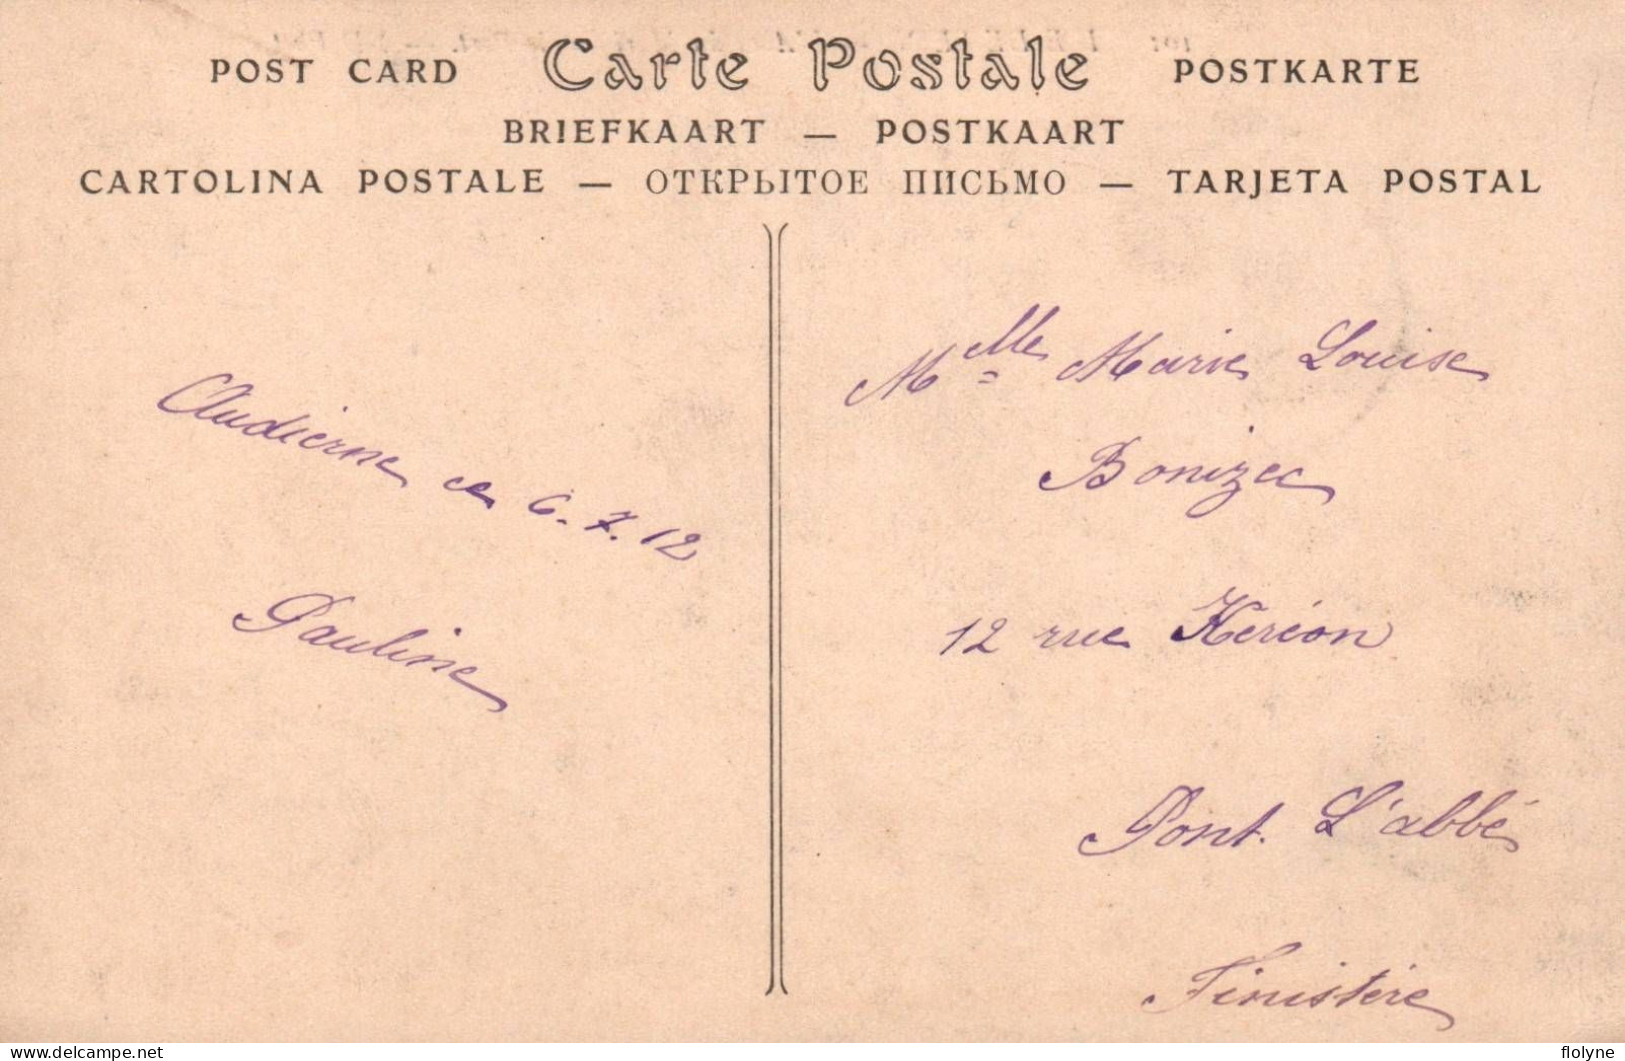 POST CARD Carte Postale POSTKARTE
BRIEFKAART — POSTKAART
CARTOLINA POSTALE — ОТКРЫТОЕ ПИСЬМО — TARJETA POSTAL
Audierne ce 6.7.12
Pauline
Mlle Marie Louise
Bonizec
12 rue Keréon
Pont. L'abbé
Finistère
delcampe.net
flolyne